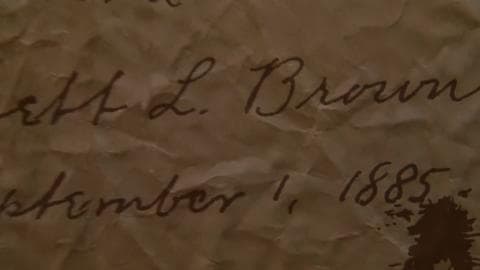 ett L. Brown
ptember 1, 1885